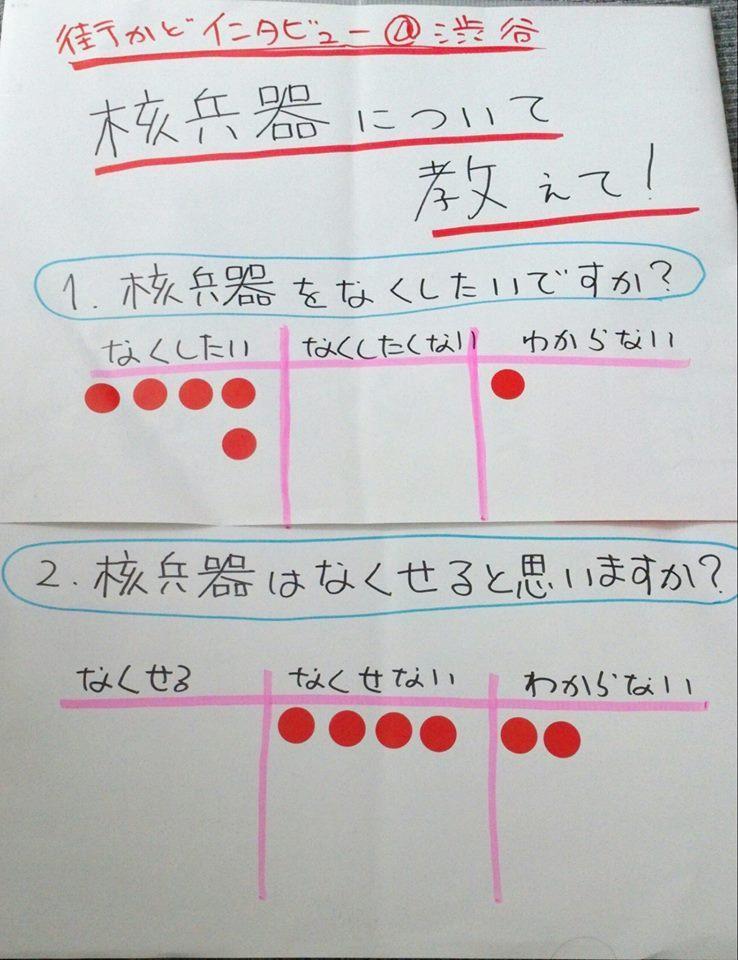 街かどインタビュー@渋谷
核兵器について
教えて!
1. 核兵器をなくしたいですか?
なくしたい なくしたくない わからない
2. 核兵器はなくせると思いますか?
なくせる なくせない わからない